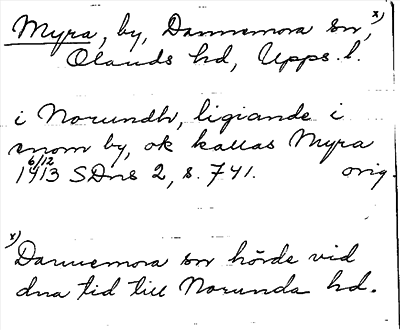 Myra, by, Dannemora sn, x)
Olands hd, Upps. l.
i Norundh, ligiande i
snom by, ok kallas Myra
6/12
1413 SDns 2, s. 741. orig.
x)
Dannemora sn hörde vid
dna tid till Norunda hd.